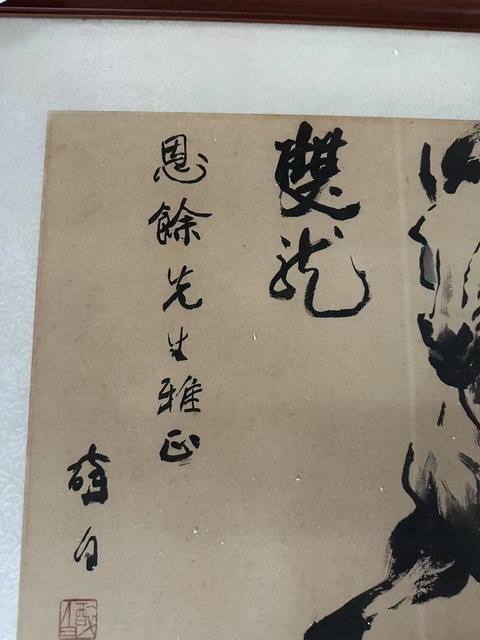 雙龍
恩餘先生雅正